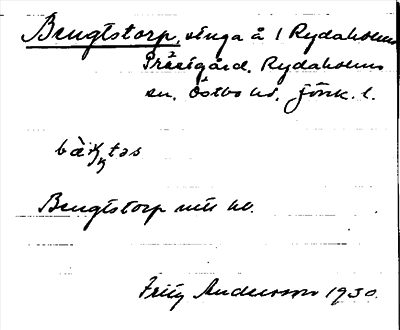 Bengtstorp, stuga å 1 Rydaholms
Prästgård. Rydaholms
sn. Östbo hd, Jönk. l.
Bengtstorp
Fritz Andersson 1930.